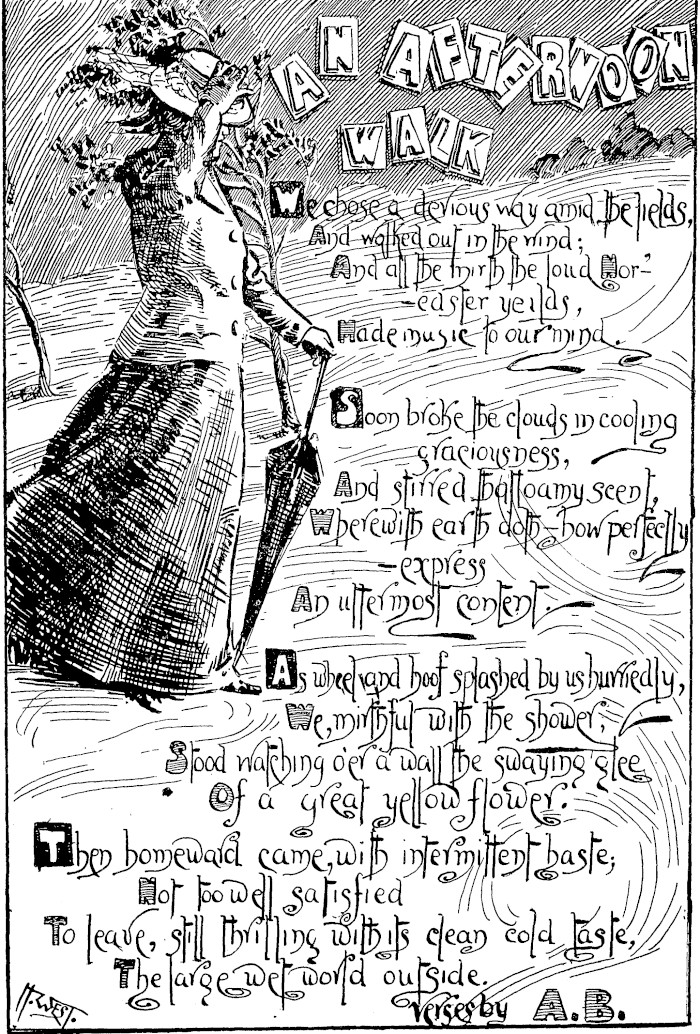 AN AFTERNOON
WALK
We chose a devious way amid the fields,
And walked out in the wind;
And all the mirth the loud Nor'-
-easter yeilds,
Made music to our mind.
Soon broke the clouds in cooling
graciousness,
And stirred that loamy scent,
Wherewith earth doth - how perfectly
- express
An uttermost content.
As wheel and hoof splashed by us hurriedly,
We, mirthful with the shower,
Stood watching o'er a wall the swaying glee
Of a great yellow flower.
Then homeward came, with intermittent haste;
Not too well satisfied
To leave, still thrilling with its clean cold taste,
The large wet world outside.
Verses by A.B.
H. West.